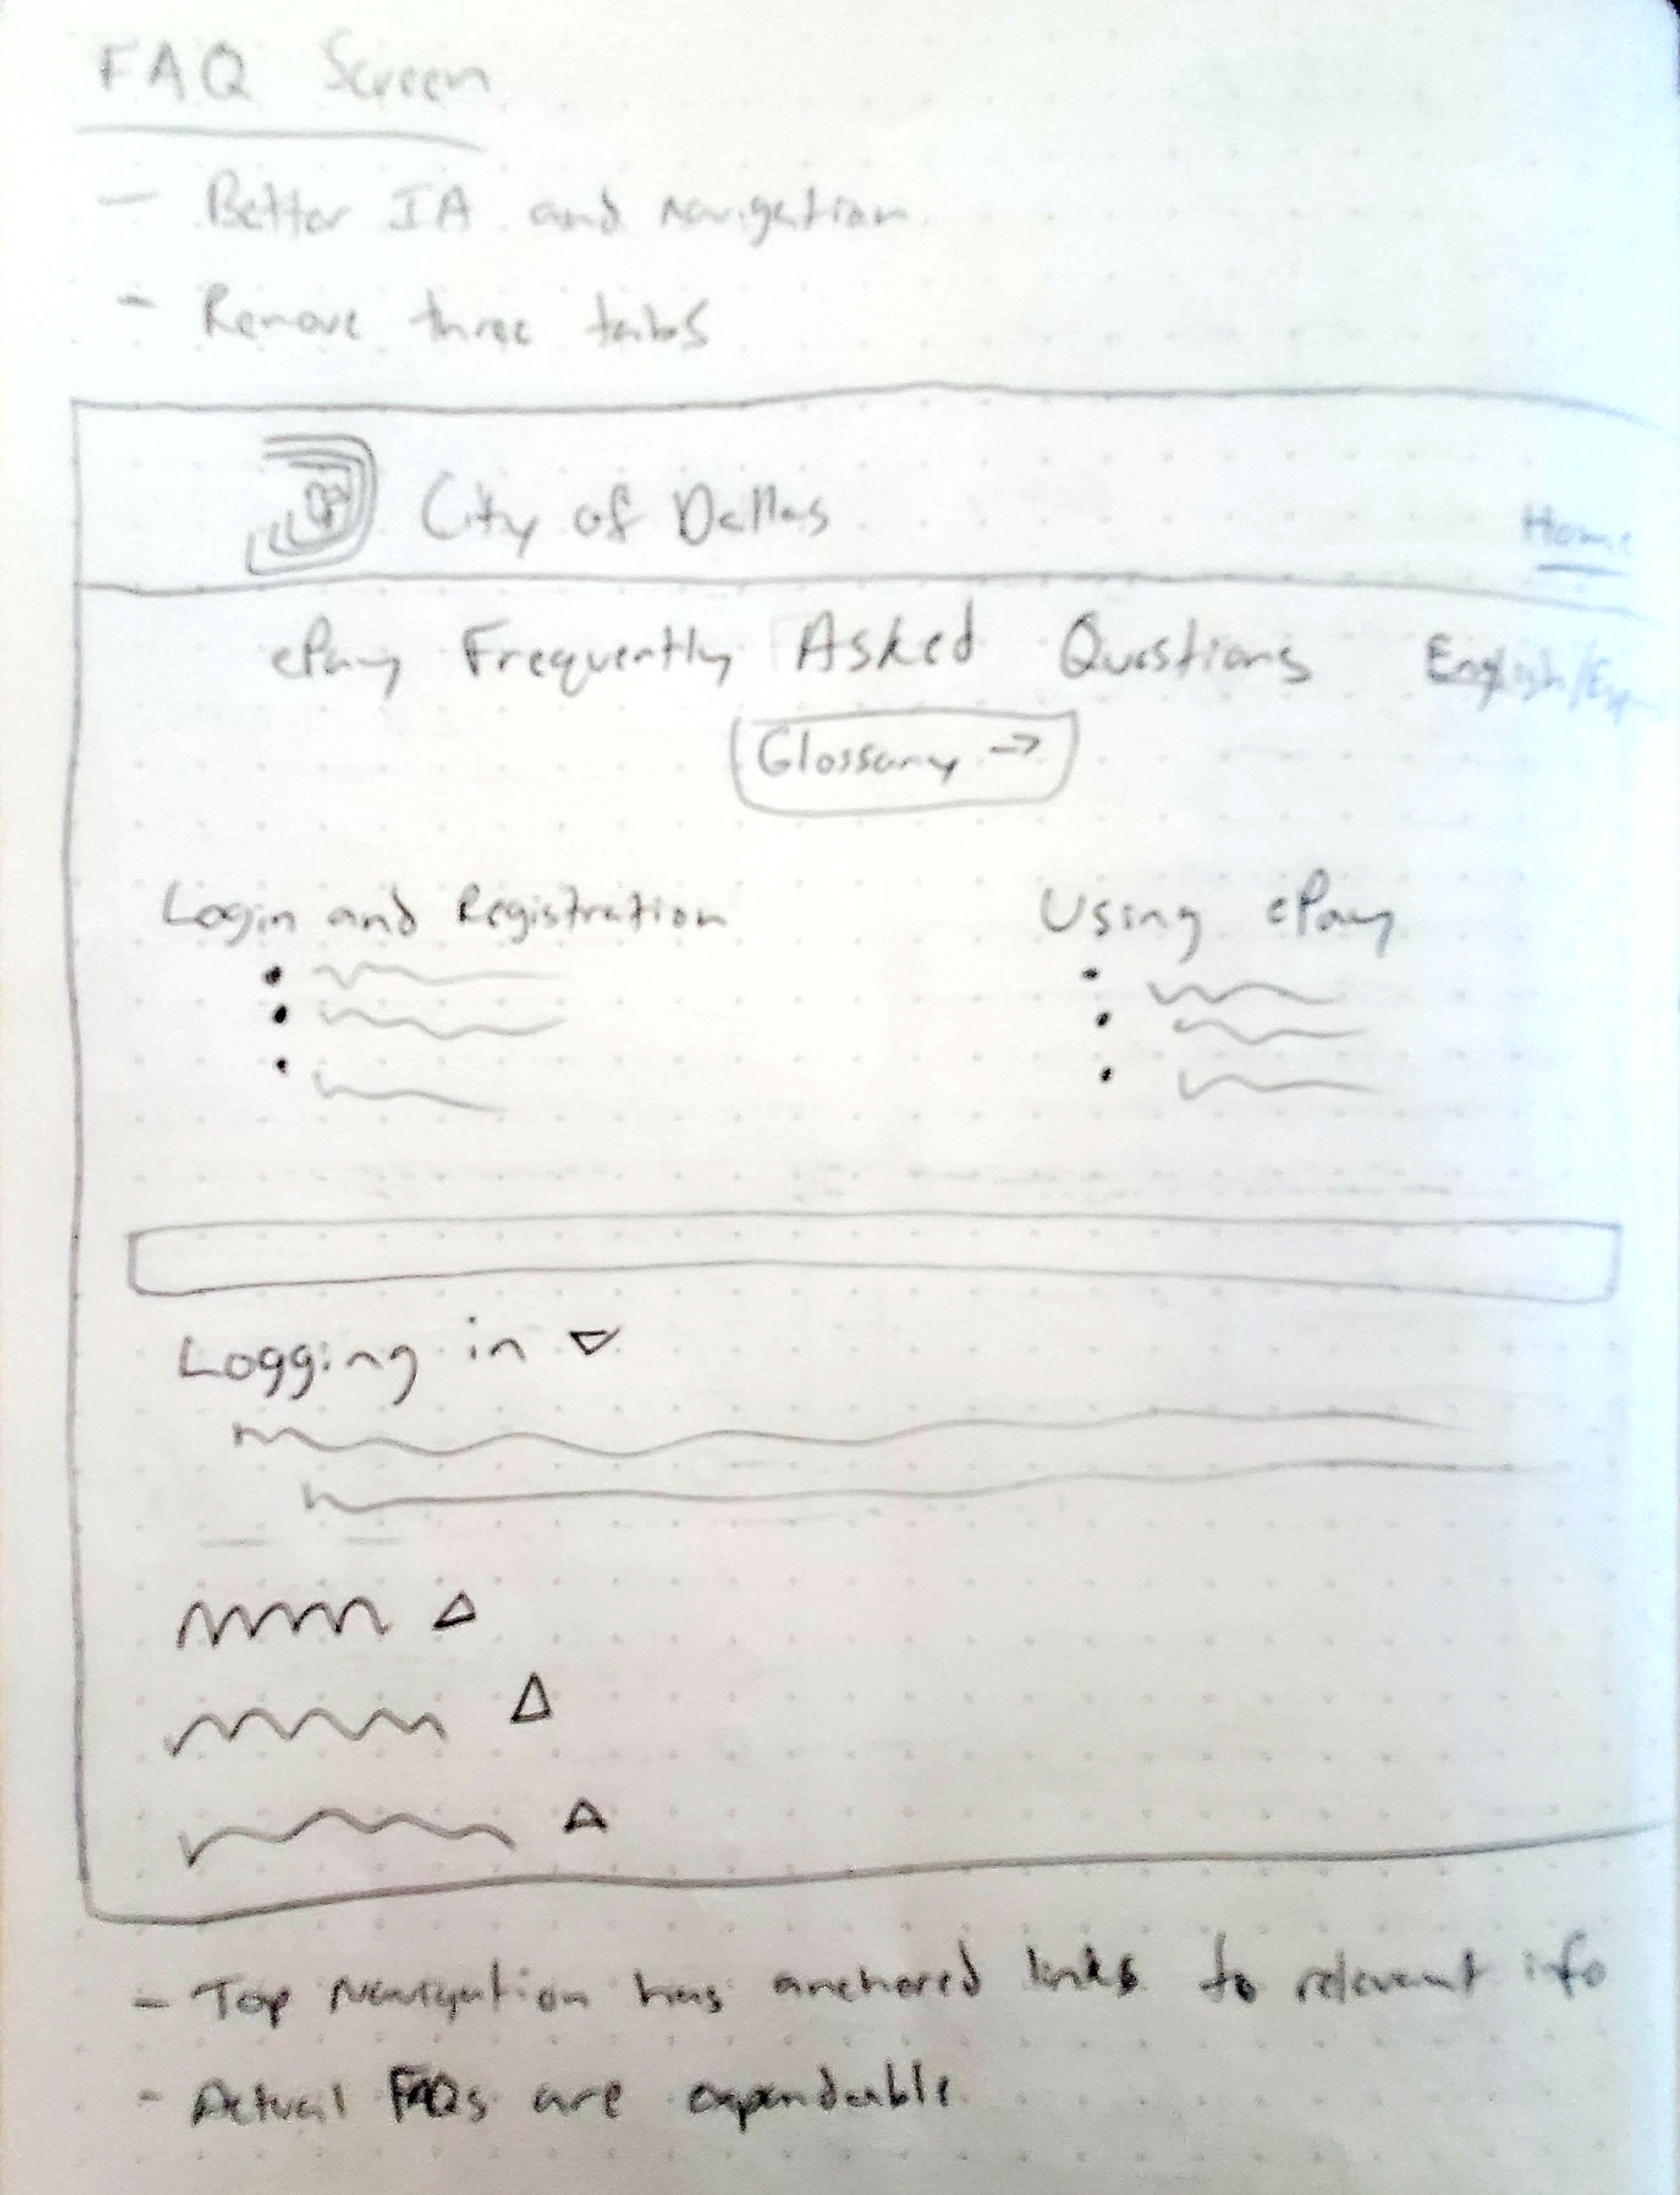 FAQ Screen
- Better IA and navigation
- Remove three tabs
City of Dallas
Home
ePay Frequently Asked Questions English/Esp
Glossary →
Login and Registration
Using ePay
Logging in
- Top Navigation has anchored links to relevant info
- Actual FAQs are expandable